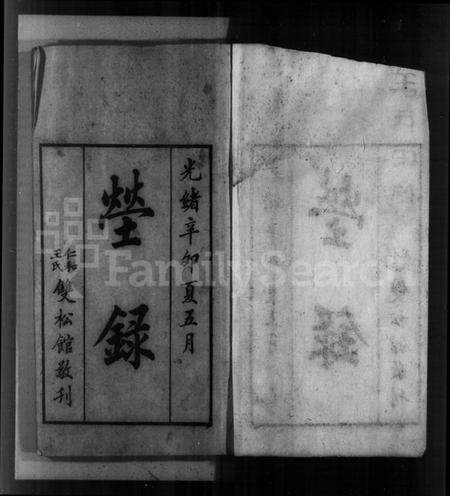 光緒辛卯夏五月
塋錄
仁和
王氏
雙松館敬刊
FamilySearch